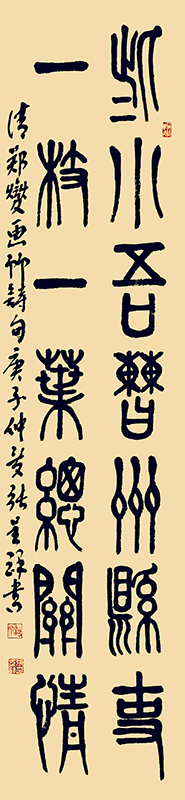 些小吾曹州縣吏
一枝一葉總關情
清鄭燮画竹詩句庚子仲夏張祥書